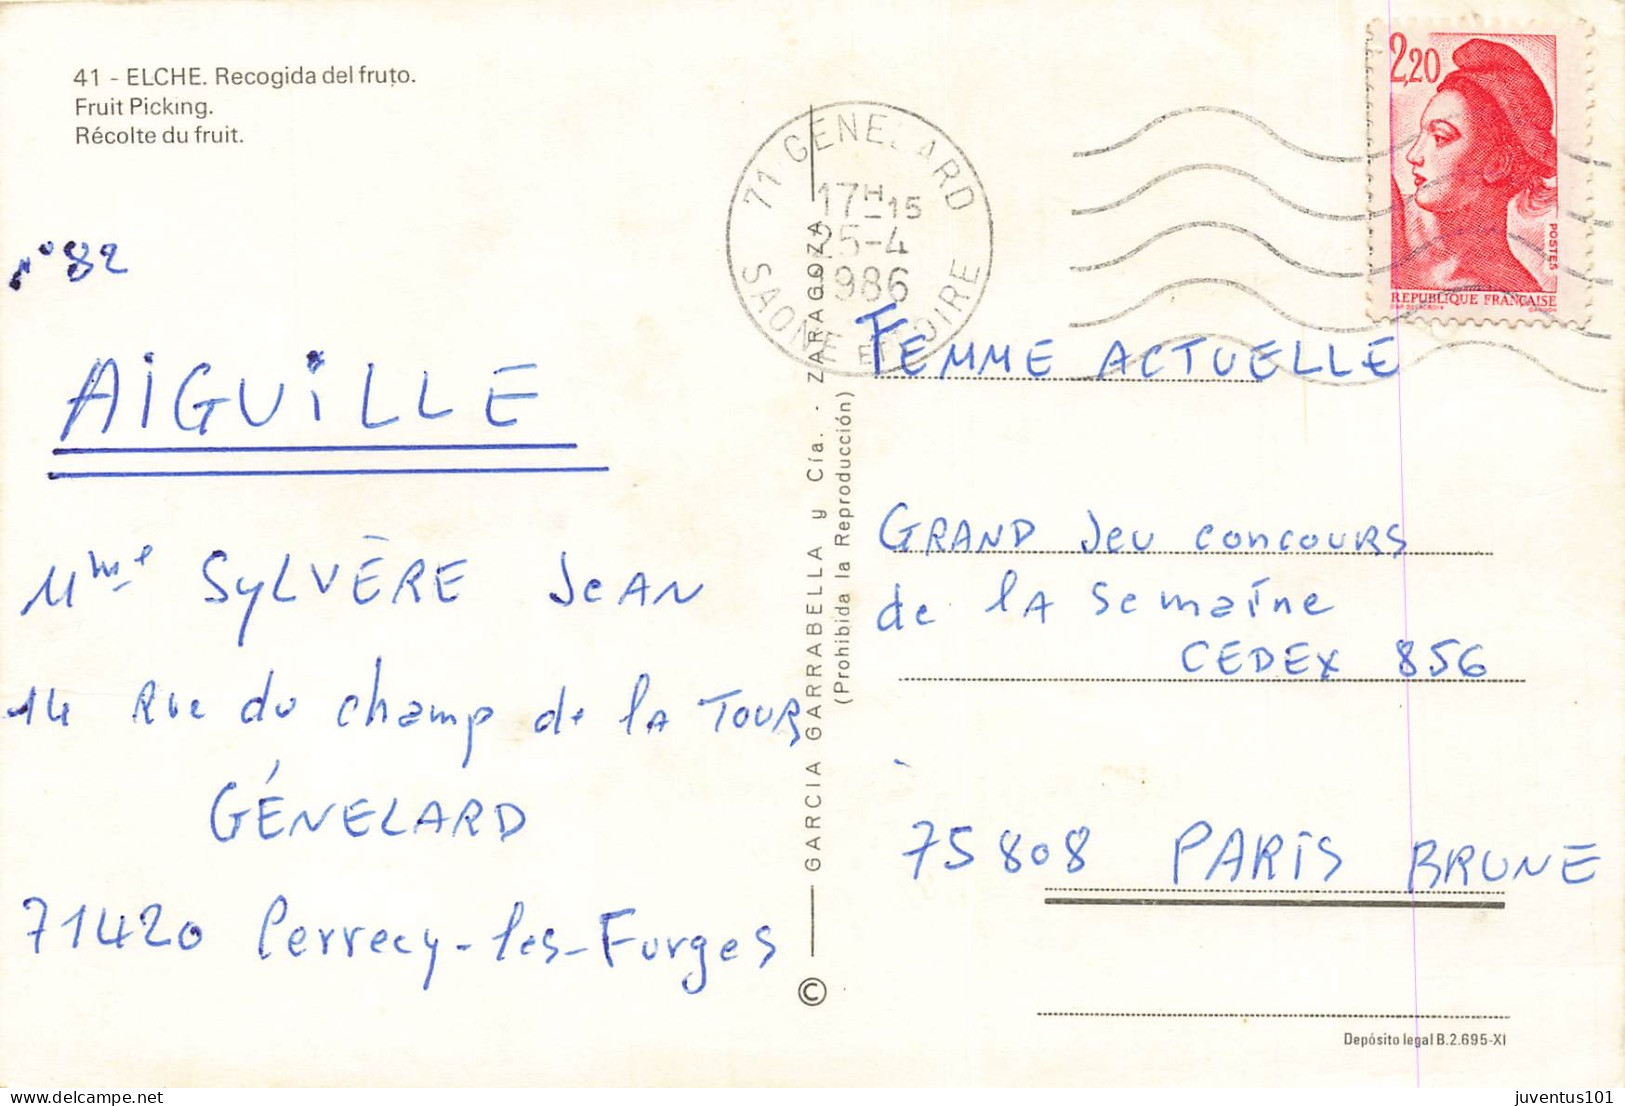 41 - ELCHE. Recogida del fruto.
Fruit Picking.
Récolte du fruit.
n°82
AIGUILLE
Mme SYLVÈRE JeAN
14 Rue du champ de lA TOUR
GÉNELARD
71420 Perrecy-les-Forges
GARCIA GARRABELLA y Cía. - ZARAGOZA
(Prohibida la Reproducción)
©
71 GENELARD
17H-15
25-4
1986
SAONE ET LOIRE
2,20
POSTES
REPUBLIQUE FRANÇAISE
FEMME ACTUELLE
GRAND Jeu concours
de lA semaine
CEDEX 856
75808 PARIS BRUNE
Depósito legal B.2.695-XI
juventus101